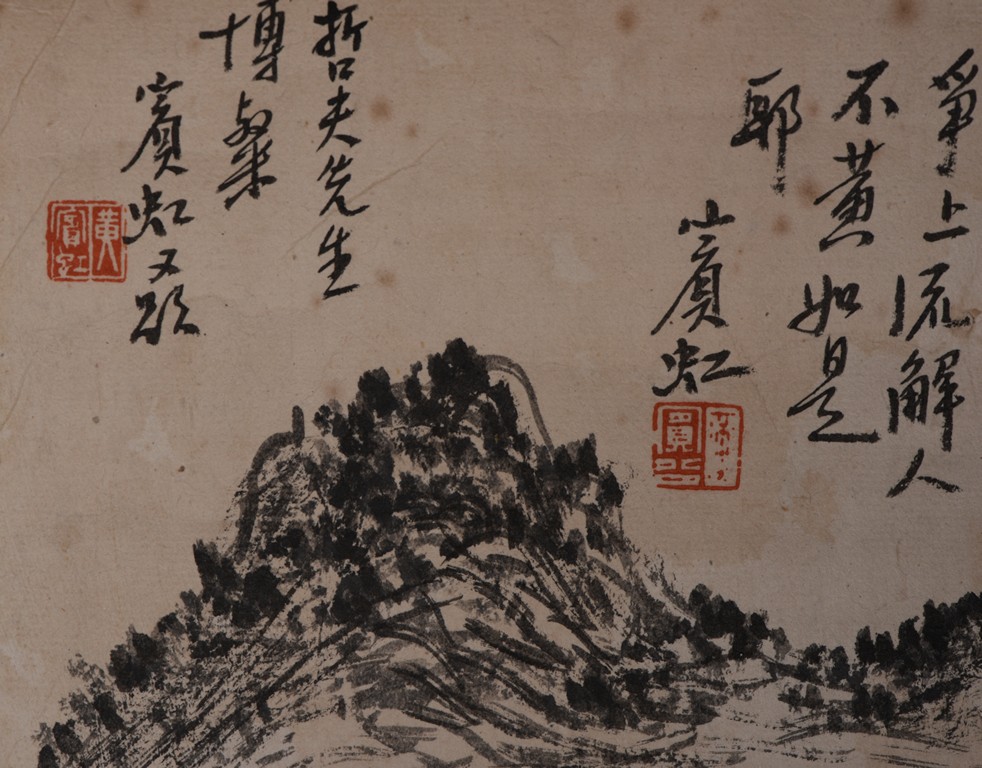 爭上流解人
不當如是
耶
賓虹
哲夫先生
博粲
賓虹又題
黃賓虹